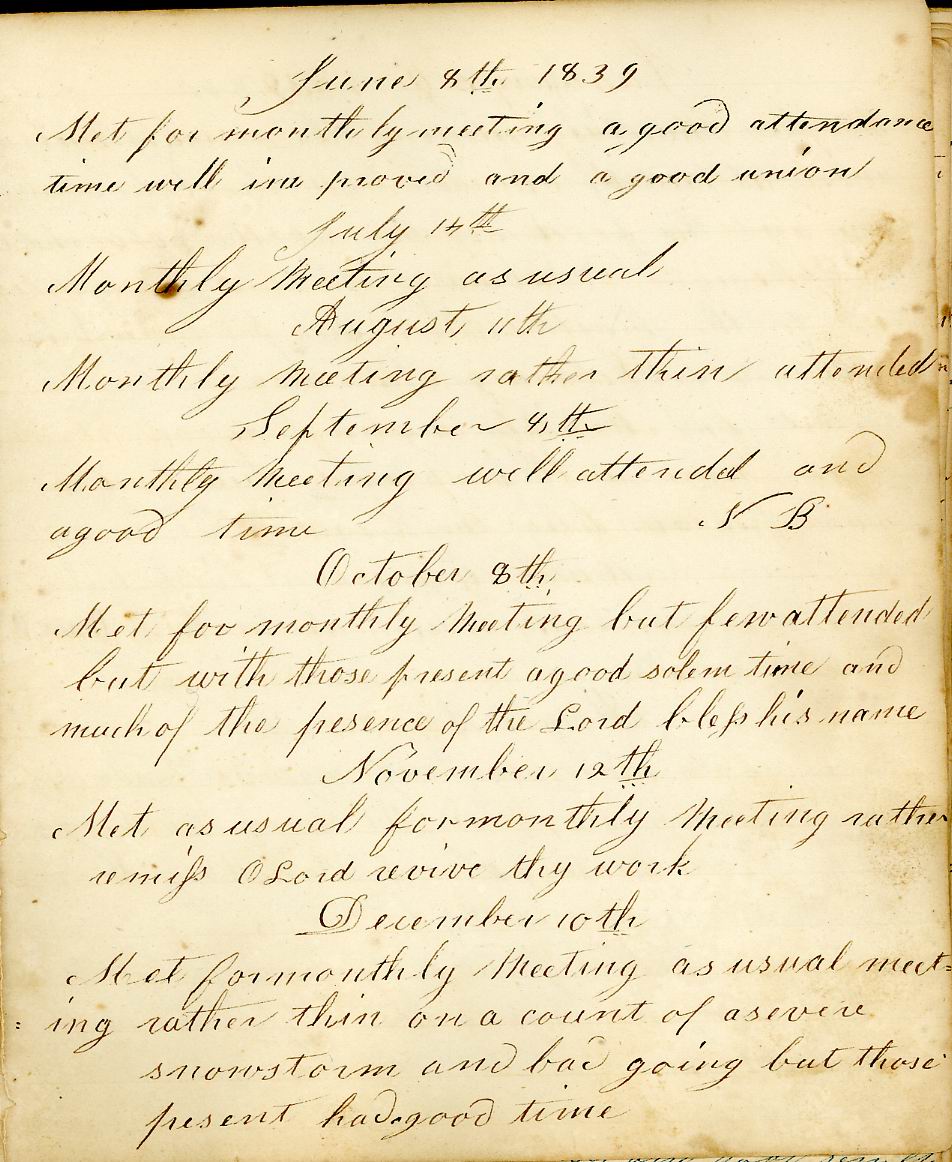 June 8th 1839
Met for monthly meeting a good attendance
time well improved and a good union
July 14th
Monthly Meeting as usual
August 11th
Monthly Meeting rather thin attended
September 8th
Monthly Meeting well attended and
a good time N B
October 8th
Met foo monthly Meeting but few attended
but with those present a good solem time and
much of the pesence of the Lord bless his name
November 12th
Met as usual for monthly Meeting rather
remiss O Lord revive thy work
December 10th
Met for monthly Meeting as usual meet=
=ing rather thin on a count of a severe
snowstorm and bad going but those
pesent had good time